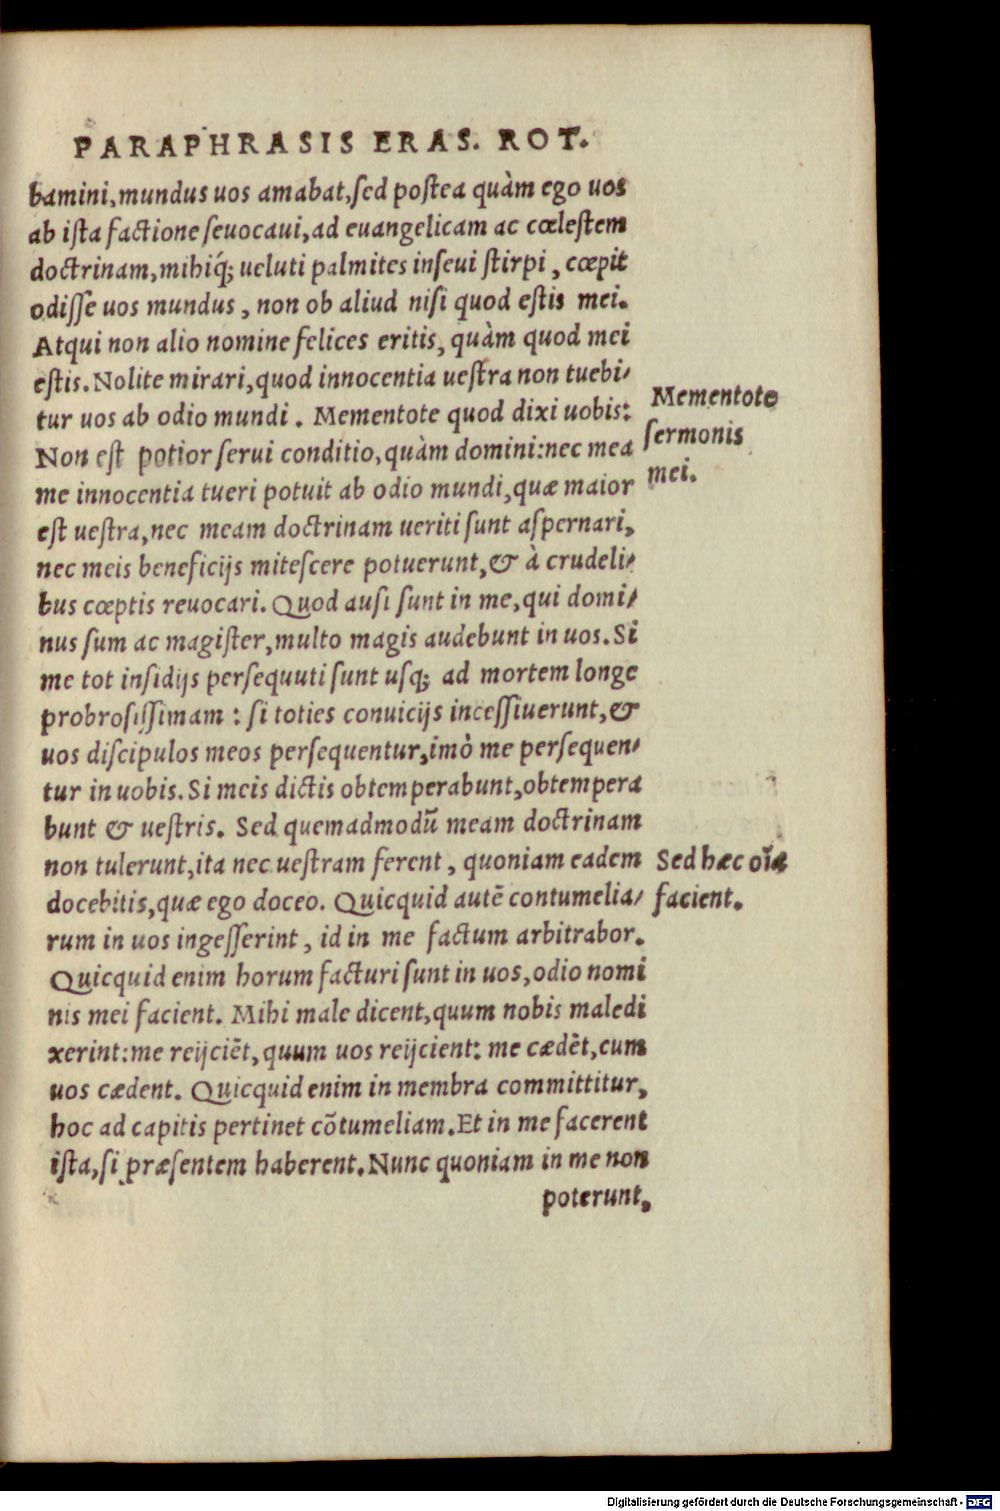 PARAPHRASIS ERAS. ROT.
bamini, mundus uos amabat, sed postea quàm ego uos
ab ista factione seuocaui, ad euangelicam ac cœlestem
doctrinam, mihiq́; ueluti palmites inseui stirpi, cœpit
odisse uos mundus, non ob aliud nisi quod estis mei.
Atqui non alio nomine felices eritis, quàm quod mei
estis. Nolite mirari, quod innocentia uestra non tuebi/
tur uos ab odio mundi. Mementote quod dixi uobis:
Mementote
sermonis
mei.
Non est potior serui conditio, quàm domini: nec mea
me innocentia tueri potuit ab odio mundi, quæ maior
est uestra, nec meam doctrinam ueriti sunt aspernari,
nec meis beneficijs mitescere potuerunt, & à crudeli/
bus cœptis reuocari. Quod ausi sunt in me, qui domi/
nus sum ac magister, multo magis audebunt in uos. Si
me tot insidijs persequuti sunt usq; ad mortem longe
probrosissimam: si toties conuicijs incessiuerunt, &
uos discipulos meos persequentur, imò me persequen/
tur in uobis. Si meis dictis obtemperabunt, obtempera
bunt & uestris. Sed quemadmodũ meam doctrinam
non tulerunt, ita nec uestram ferent, quoniam eadem
Sed hæc oĩa
facient.
docebitis, quæ ego doceo. Quicquid autẽ contumelia/
rum in uos ingesserint, id in me factum arbitrabor.
Quicquid enim horum facturi sunt in uos, odio nomi
nis mei facient. Mihi male dicent, quum nobis maledi
xerint: me reijciẽt, quum uos reijcient: me cædẽt, cum
uos cædent. Quicquid enim in membra committitur,
hoc ad capitis pertinet cõtumeliam. Et in me facerent
ista, si præsentem haberent. Nunc quoniam in me non
poterunt,
Digitalisierung gefördert durch die Deutsche Forschungsgemeinschaft - DFG